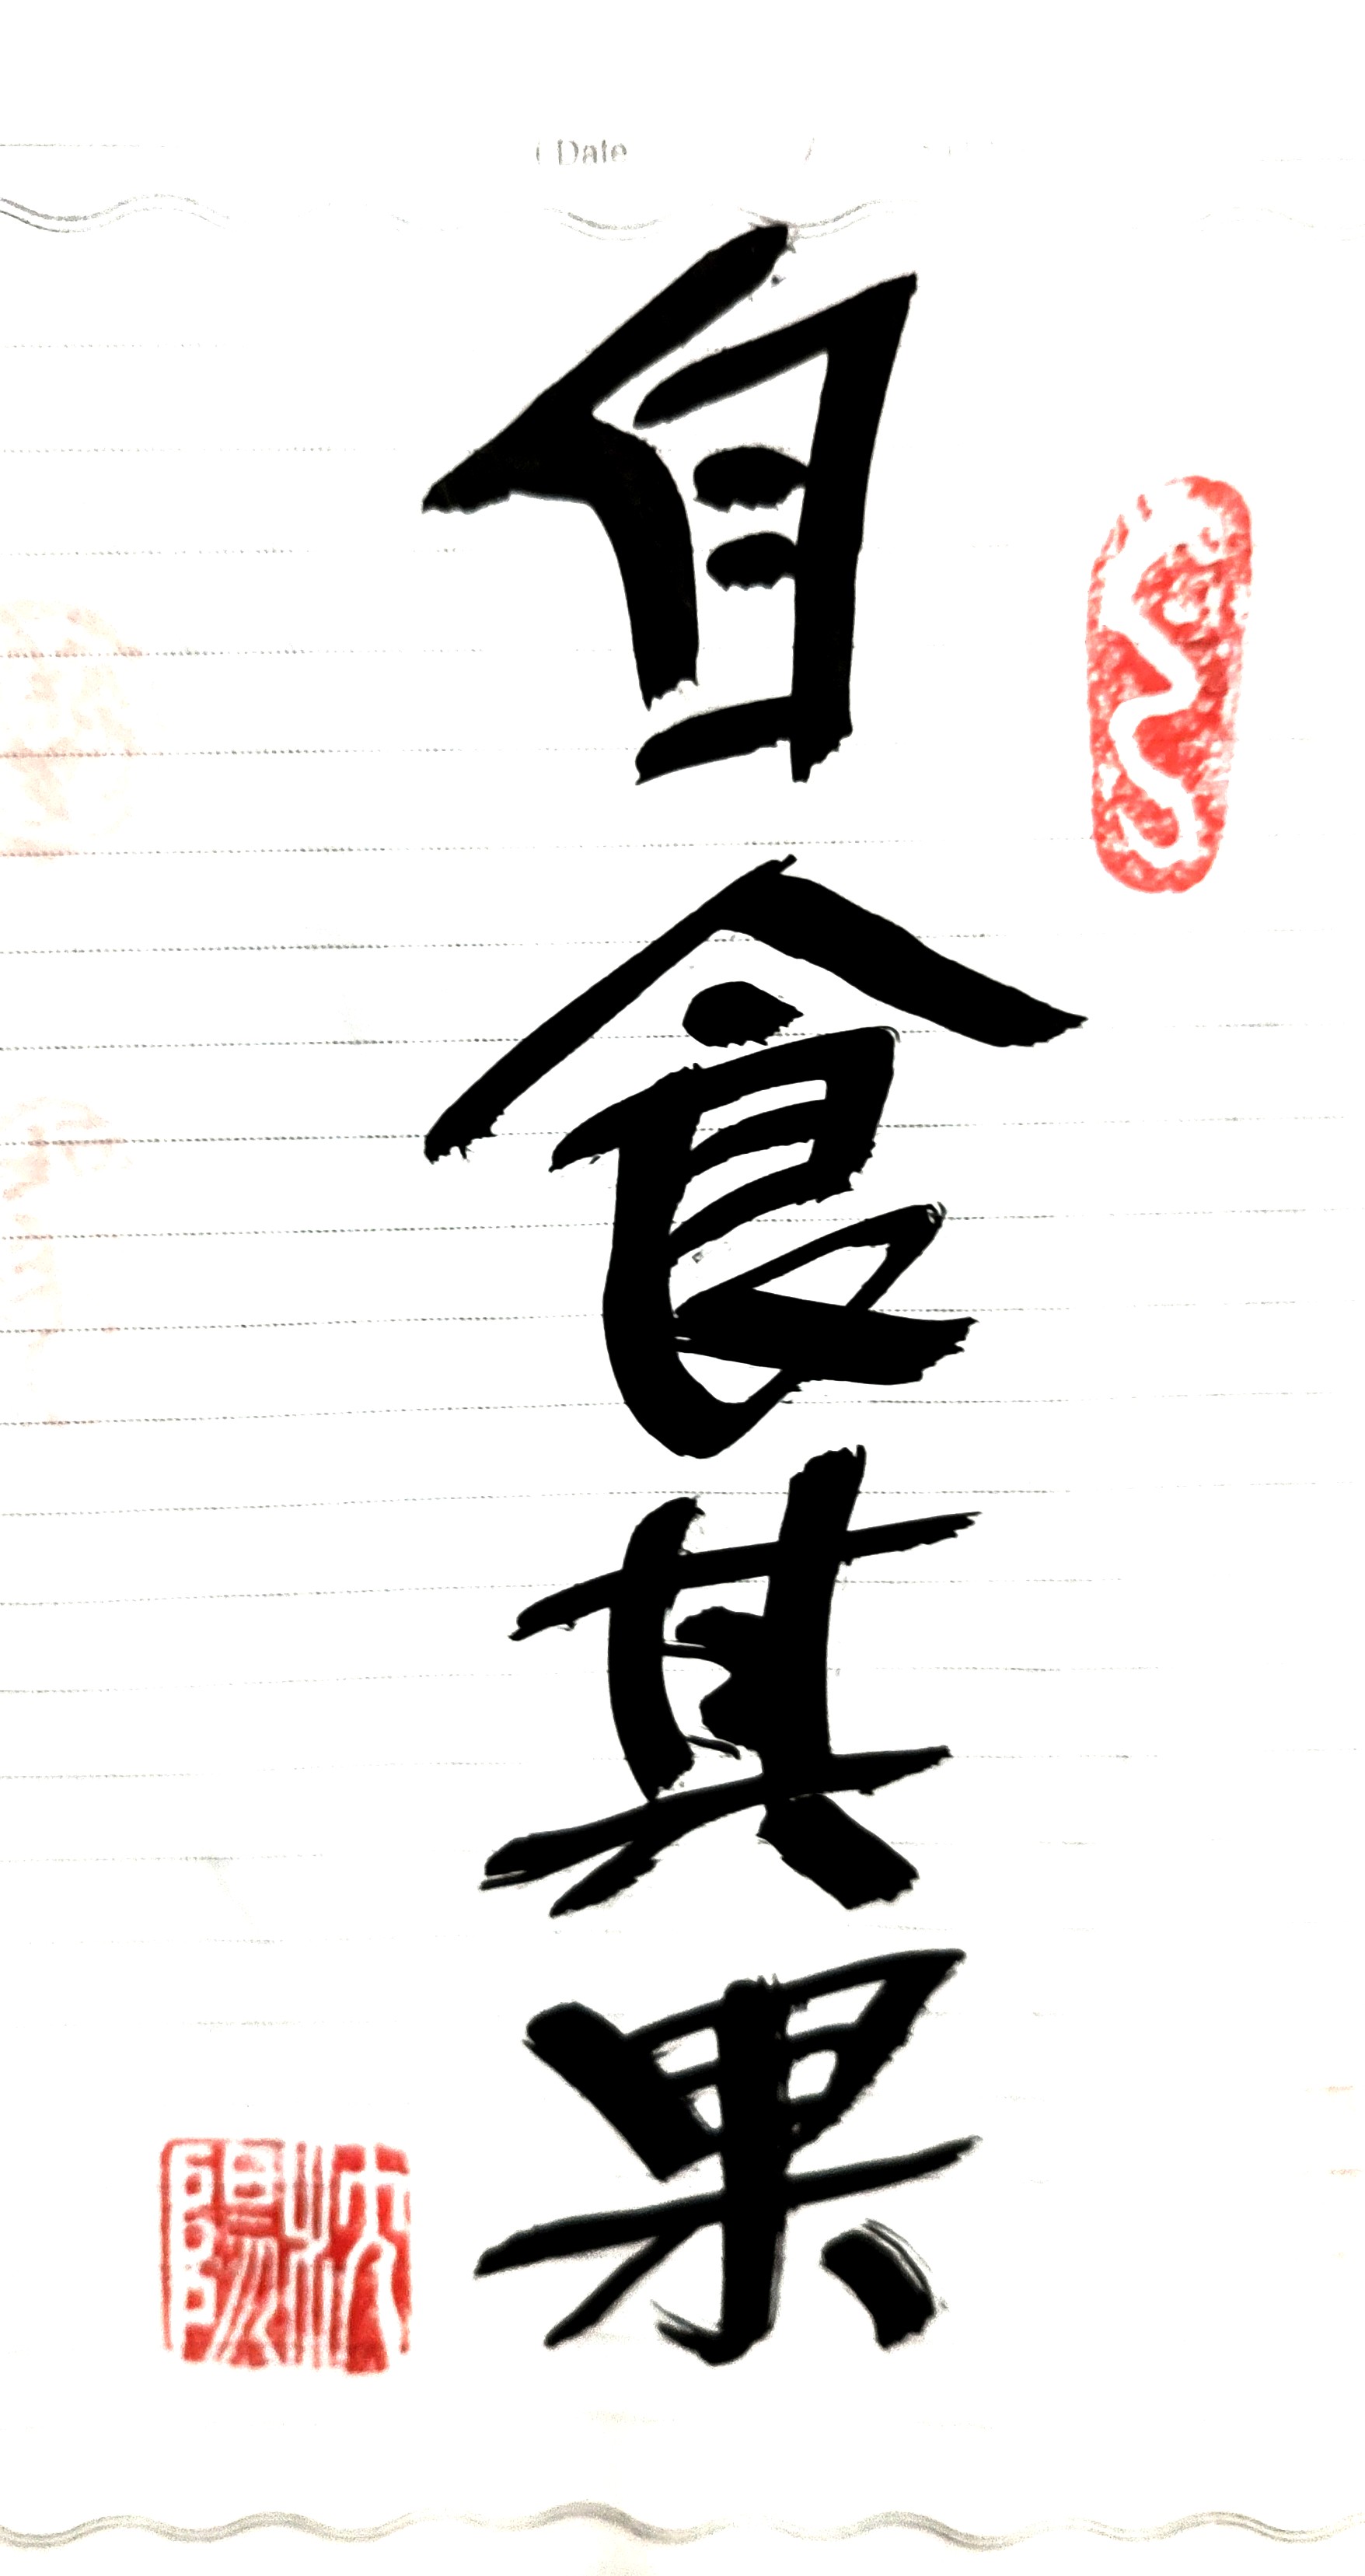 (Date
自食其果